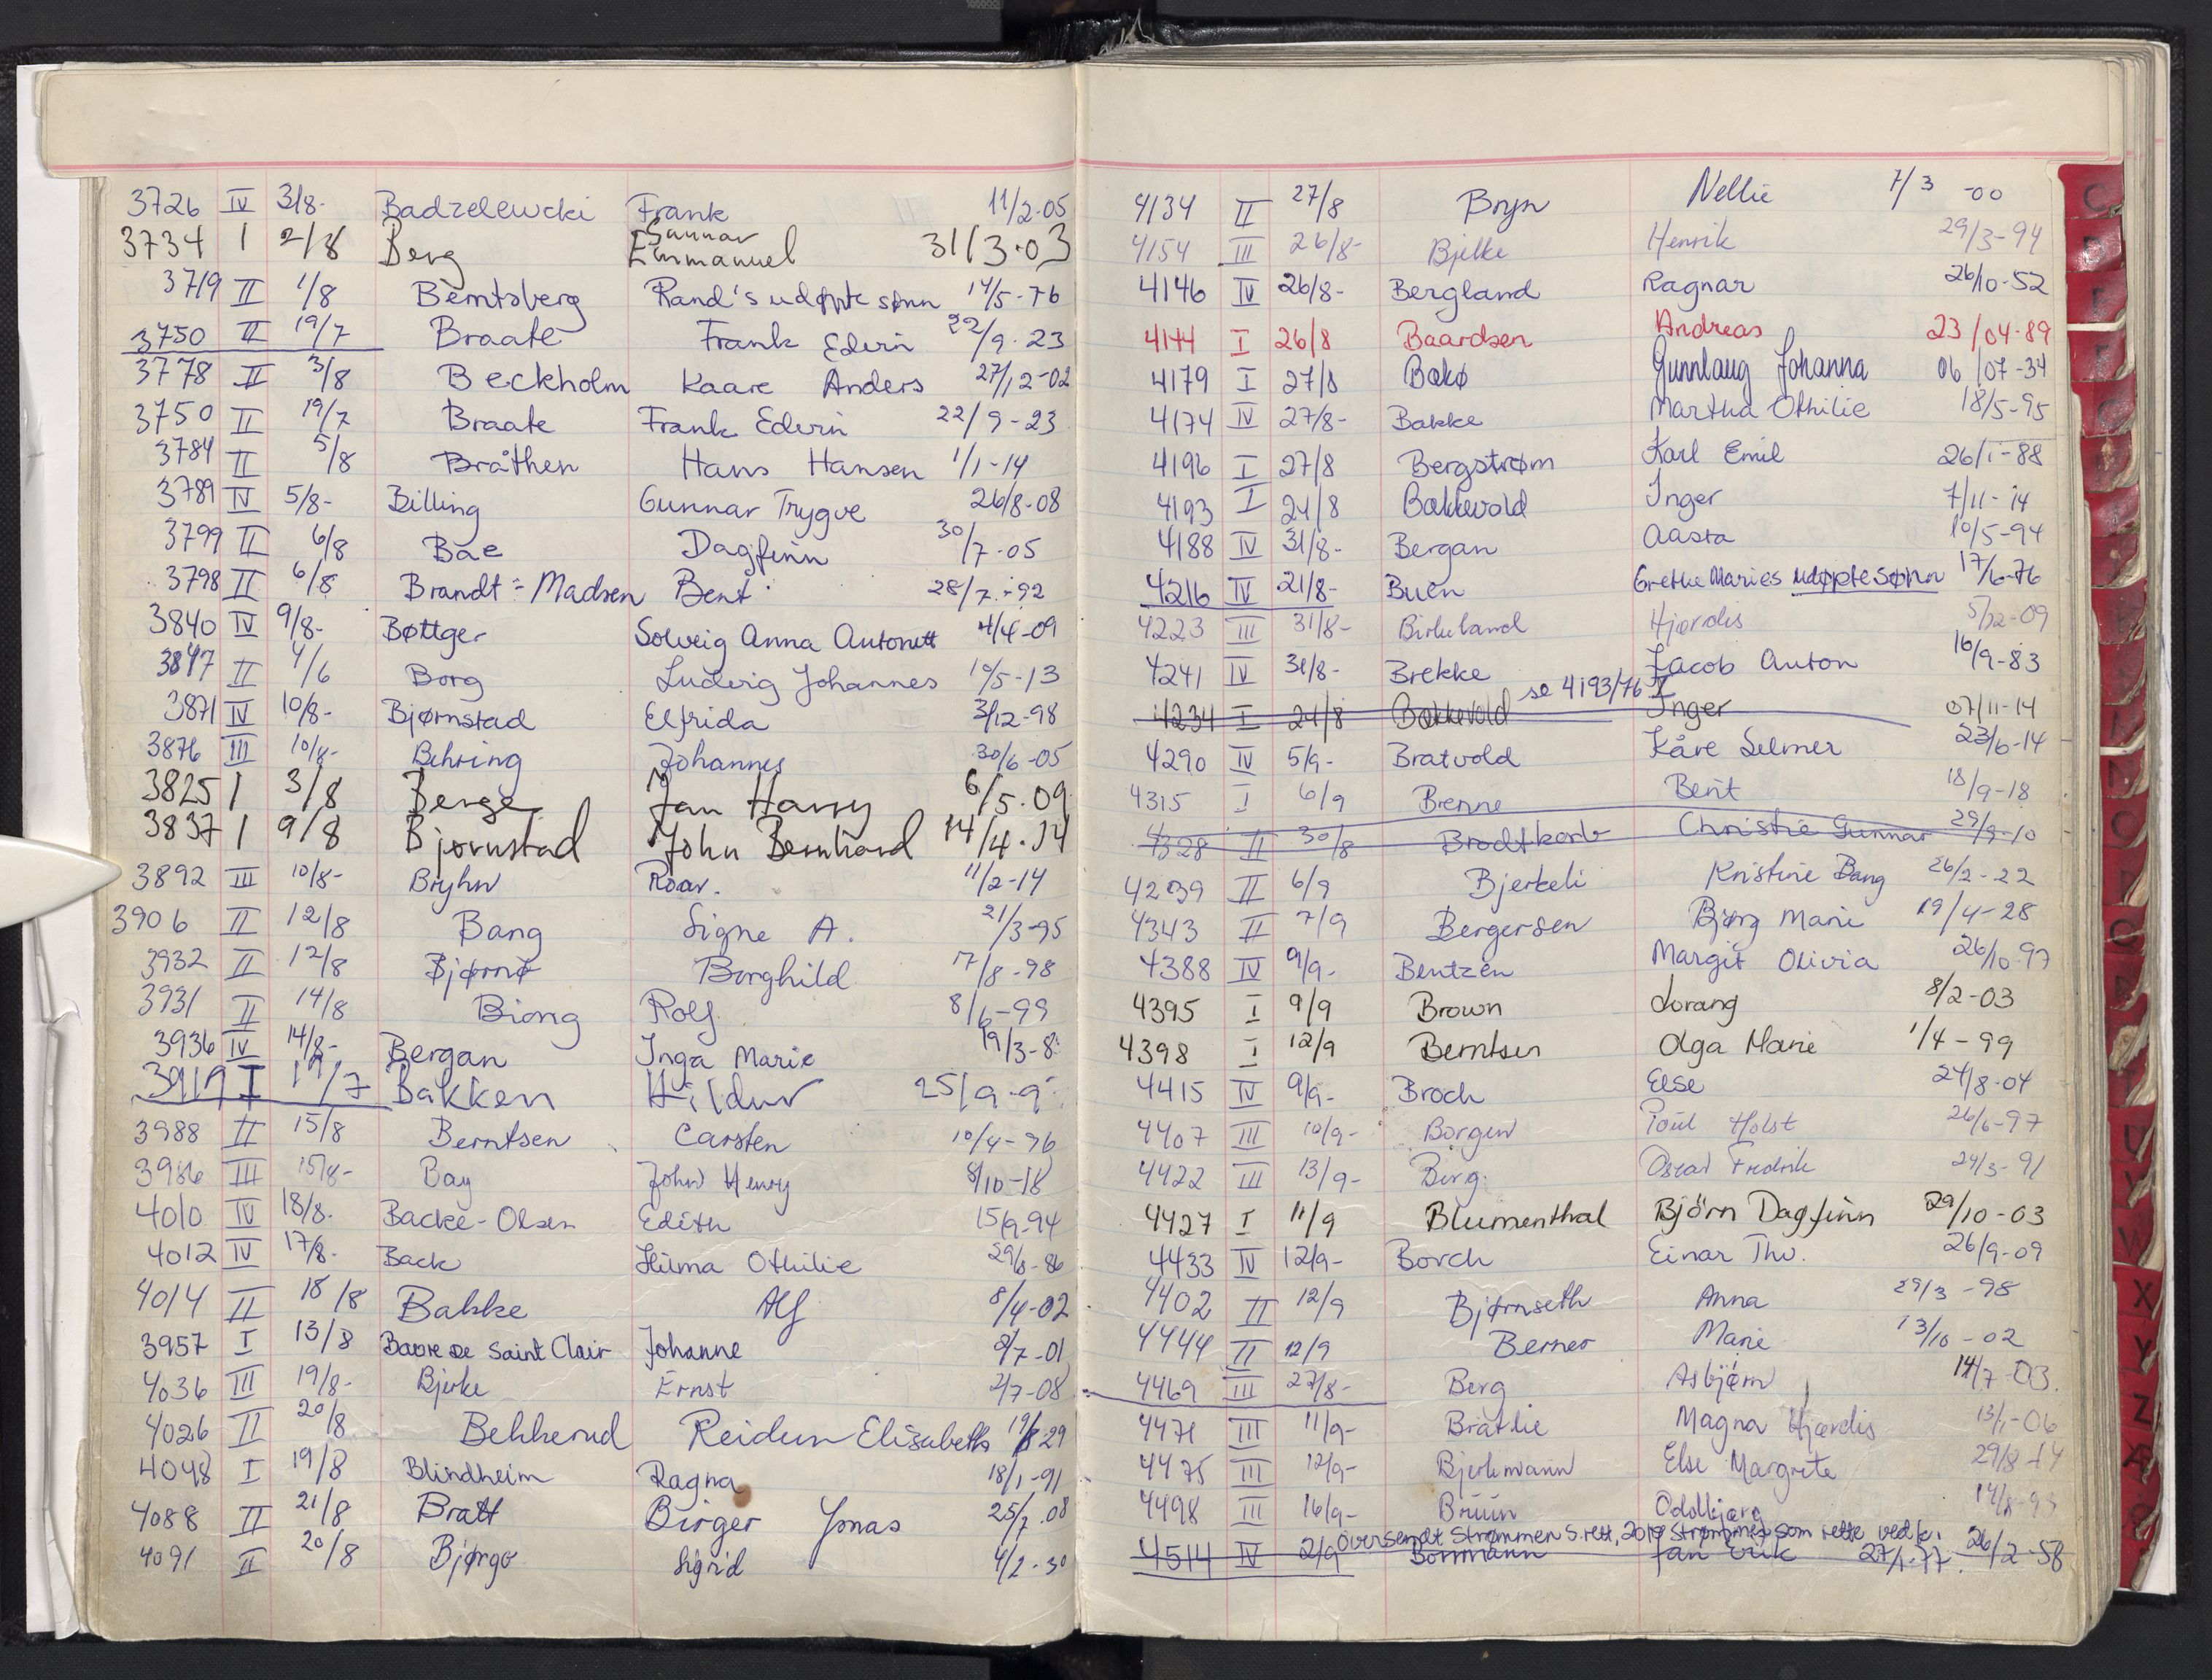 3726 IV 3/8- Badzelewcki Frank 11/2-05
3734 I 2/8 Berg Gunnar Emmanuel 31/3-03
3719 II 1/8 Berntsberg Rand's udøpte sønn 14/5-76
3750 II 19/7 Braate Frank Edvin 22/9-23
3778 II 3/8 Beckholm Kaare Anders 27/12-02
3750 II 19/7 Braate Frank Edvin 22/9-23
3784 II 5/8 Bråthen Hans Hansen 1/1-14
3789 IV 5/8- Billing Gunnar Trygve 26/8-08
3799 II 6/8 Bae Dagfinn 30/7-05
3798 II 6/8 Brandt-Madsen Bent 28/7-92
3840 IV 9/8- Bøttger Solveig Anna Antonett 4/4-09
3847 II 4/6 Borg Ludvig Johannes 10/5-13
3871 IV 10/8- Bjørnstad Elfrida 3/12-98
3876 III 10/8- Behring Johannes 30/6-05
3825 I 3/8 Berge Jan Harry 6/5.09
3837 I 9/8 Bjørnstad John Bernhard 14/4.14
3892 III 10/8- Bryhn Roar. 11/2-14
3906 II 12/8 Bang Signe A. 21/3-95
3932 II 12/8 Bjørnø Borghild 17/8-98
3931 II 14/8 Biong Rolf 8/6-99
3936 IV 14/8- Bergan Inga Marie 19/3-8
I /7 Bakken Hildur 25/9-9
3988 II 15/8 Berntsen Carsten 10/4-96
3986 III 15/8- Bay John Henry 8/10-18
4010 IV 18/8- Backe-Olsen Edith 15/9-94
4012 IV 17/8- Back Othilie 29/6-86
4014 II 18/8 Bakke Alf 8/4-02
3957 I 13/8 de Saint Clair Johanne 2/7-01
4036 III 19/8- Bjerke Ernst 2/7-08
4026 II 20/8 Bekkerud Reidun Elisabeth 19/8 29
4048 I 19/8 Blindheim Ragna 18/1-91
4088 II 21/8 Bratt Birger Jonas 25/7-08
4091 II 20/8 Bjørgo Sigrid 4/2-30
4134 II 27/8 Bryn Nellie 7/3 -00
4154 III 26/8- Bjelke Henrik 29/3-94
4146 IV 26/8- Bergland Ragnar 26/10-52
4144 I 26/8 Baardsen Andreas 23/04-89
4179 I 27/8 Bakø Gunnlaug Johanna 06/07-34
4174 IV 27/8- Bakke Martha Othilie 18/5-95
4196 I 27/8 Bergstrøm Karl Emil 26/1-88
4193 I 24/8 Bakkevold Inger 7/11-14
4188 IV 31/8- Bergan Aasta 10/5-94
4216 IV 21/8- Buen Grethe Maries udøpte sønn 17/6-76
4223 III 31/8- Birkeland Hjørdis 5/12-09
4241 IV 31/8- Brekke Jacob Anton 16/9-83
4234 I 24/8 Bakkevold se 4193/76 I Inger 07/11-14
4290 IV 5/9- Bratvold Kåre Selmer 23/6-14
4315 I 6/9 Brenne Berit 18/9-18
4328 II 30/8 Brodtkorb Christie Gunnar 29/9-10
4239 II 6/9 Bjerkeli Kristine Bang 26/2-22
4343 II 7/9 Bergersen Bjørg Marie 19/4-28
4388 IV 9/9- Bentzen Margit Olivia 26/10-97
4395 I 9/9 Brown Lorang 8/2-03
4398 I 12/9 Berntsen Olga Marie 1/4-99
4415 IV 9/9- Broch Else 24/8-04
4407 III 10/9- Borgen Poul Holst 26/6-97
4422 III 13/9- Berg Oscar Fredrik 24/3-91
4427 I 11/9 Blumenthal Björn Dagfinn 29/10-03
4433 IV 12/9- Borch Einar Thv. 26/9-09
4402 II 12/9 Bjørnseth Anna 29/3-98
4444 II 12/9 Berner Marie 13/10-02
4469 III 27/8- Berg Asbjørn 14/7-03.
4471 III 11/9- Bratlie Magna Hjørdis 13/1-06
4475 III 12/9- Bjerkmann Else Margrete 29/8-14
4498 III 16/9- Bruun Oddbjørg 14/8-93
Oversendt Strømmen S.rett, 2010 Strømmen som rette vedk. 27/1-77.
4514 IV 2/9 Borrmann Jan Erik 26/2-58
C
U
V
W
X
Y
Z